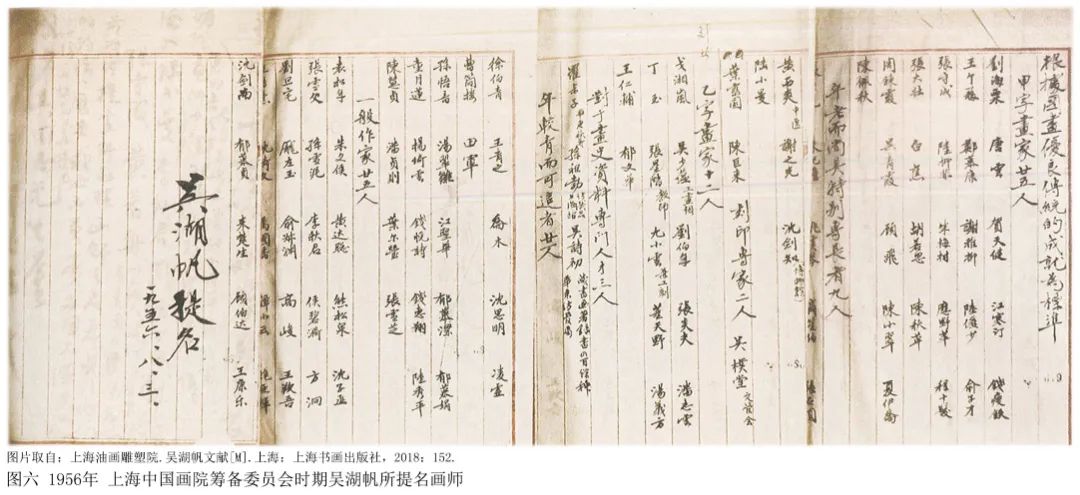 根據國畫優良傳統的成就為標準
甲字畫家廿五人
劉海粟 唐雲 賀天健 江寒汀 錢瘦鐵
王个簃 鄭慕康 謝稚柳 陸儼少 俞子才
張守成 陸抑非 朱梅邨 應野苹 程十髮
張大壯 白蕉 胡若思 陳秋草
周鍊霞 吳青霞 顧飛 陳小翠 夏伊喬
陳佩秋
年老而具特别專長者九人
謝之光 沈劍知
陸小曼
葉露園 陳巨來 刻印專家二人 吳樸堂 文管會
乙字畫家十二人
戈湘嵐 劉伯年 張炎夫 潘志雲
丁玉 張星階 教師 尤小雲 董天野 湯義方
王仁輔 郁文華
對于畫史資料專門人才三人
吳詩初
年較青而可造者廿人
徐伯青 王青之 喬木 沈思明 凌虛
曹簡樓 田軍
孫悟音 湯翠雛 江聖華 郁慕潔 郁慕娟
童月蓮 楊倚雲 錢悅詩 陸秀平
陳慧貞 潘貞則 張雪芝
一般作家廿五人
袁松年 朱文侯 黃達聰 熊松泉 沈子丞
張雪父 孫雪泥 李秋君 侯碧漪 方洞
劉旦宅 龐左玉 俞淑淵 高峻 王敬吾
沈劍南 郁慕貞 來楚生 錢伯達 王康樂
吳湖帆提名
一九五六、八、三、
图片取自：上海油画雕塑院.吴湖帆文献[M].上海：上海书画出版社，2018：152.
图六 1956年 上海中国画院筹备委员会时期吴湖帆所提名画师